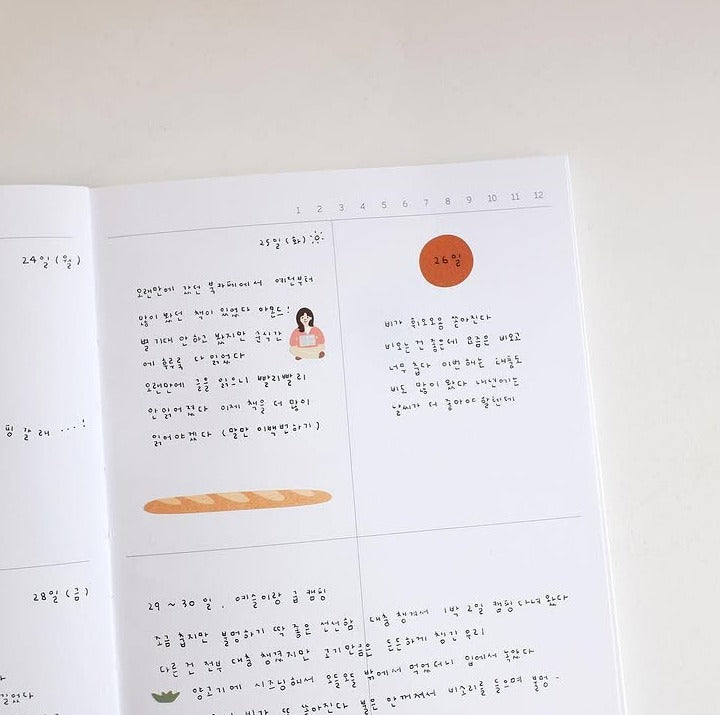 1 2 3 4 5 6 7 8 9 10 11 12
24일 (월)
갈래 ...!
28일 (금)
25일 (화)
오랜만에 갔던 북카페에서 예전부터
많이 봤던 책이 있었다 아몬드!
별 기대 안 하고 봤지만 순식간
에 후루룩 다 읽었다
오랜만에 글을 읽으니 빨리빨리
안 읽어졌다 이제 책을 더 많이
읽어야겠다 (말만 이백번하기)
26일
비가 쏟아진다
비오는 건 좋은데 요즘은 비오고
너무 춥다 이번 해는 태풍도
비도 많이 왔다 내년에는
날씨가 더 좋아야 할텐데
29 ~ 30 일 . 예슬이랑 급 캠핑
조금 춥지만 불멍하기 딱 좋은 선선함 대충 챙겨서 1박 2일 캠핑 다녀왔다
다른 건 전부 대충 챙겼지만 고기만큼은 든든하게 챙긴 우리
양고기에 시즈닝해서 오들오들 밖에서 먹었더니 입에서 녹았다
비가 또 쏟아진다 불은 안꺼져서 빗소리를 들으며 불멍 -